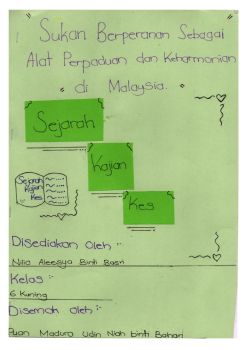 Sukan Berperanan Sebagai
Alat Perpaduan dan Keharmonian
di Malaysia.
Sejarah
Kajian
Kes
Sejarah
Kajian
Kes
Disediakan Oleh :-
Aleesya Binti
Kelas :-
6 Kuning
Disemak oleh :-
Puan Madura Udin binti